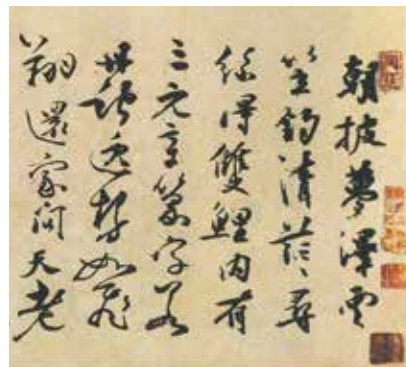 朝披夢澤雲
笠釣清茫〻尋
絲得雙鯉內有
三元章篆字若
丹蛇逸勢如飛
翔還家問天老